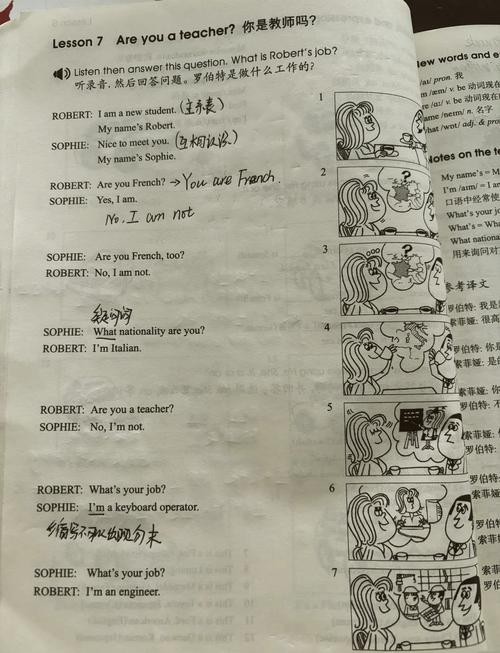 Lesson 7 Are you a teacher? 你是教师吗?
Listen then answer this question. What is Robert's job?
听录音, 然后回答问题。罗伯特是做什么工作的?
ROBERT: I am a new student. (主系表)
My name's Robert.
SOPHIE: Nice to meet you. (互相认识)
My name's Sophie.
ROBERT: Are you French? → You are French.
SOPHIE: Yes, I am.
No. I am not
SOPHIE: Are you French, too?
ROBERT: No, I am not.
SOPHIE: What nationality are you?
ROBERT: I'm Italian.
ROBERT: Are you a teacher?
SOPHIE: No, I'm not.
ROBERT: What's your job?
SOPHIE: I'm a keyboard operator.
缩写不可以出现句末
SOPHIE: What's your job?
ROBERT: I'm an engineer.
1
2
3
4
5
6
7
New words and e
/aɪ/ pron. 我
/æm/ v. be 动词现在
/neɪm/ n. 名字
what /wɒt/ adj. & pro
Notes on the te
My name's = M
I'm /aɪm/ = I a
口语中经常使
What's your jo
What's = Wha
What nationa
用来询问对
参考译文
罗伯特: 我是
索菲娅: 很高
罗伯特: 你是
索菲娅: 是的
索菲娅: 你
罗伯特: 不
索菲娅:
罗伯特:
罗伯特
索菲娅
罗伯特
索菲娅
索菲
罗伯